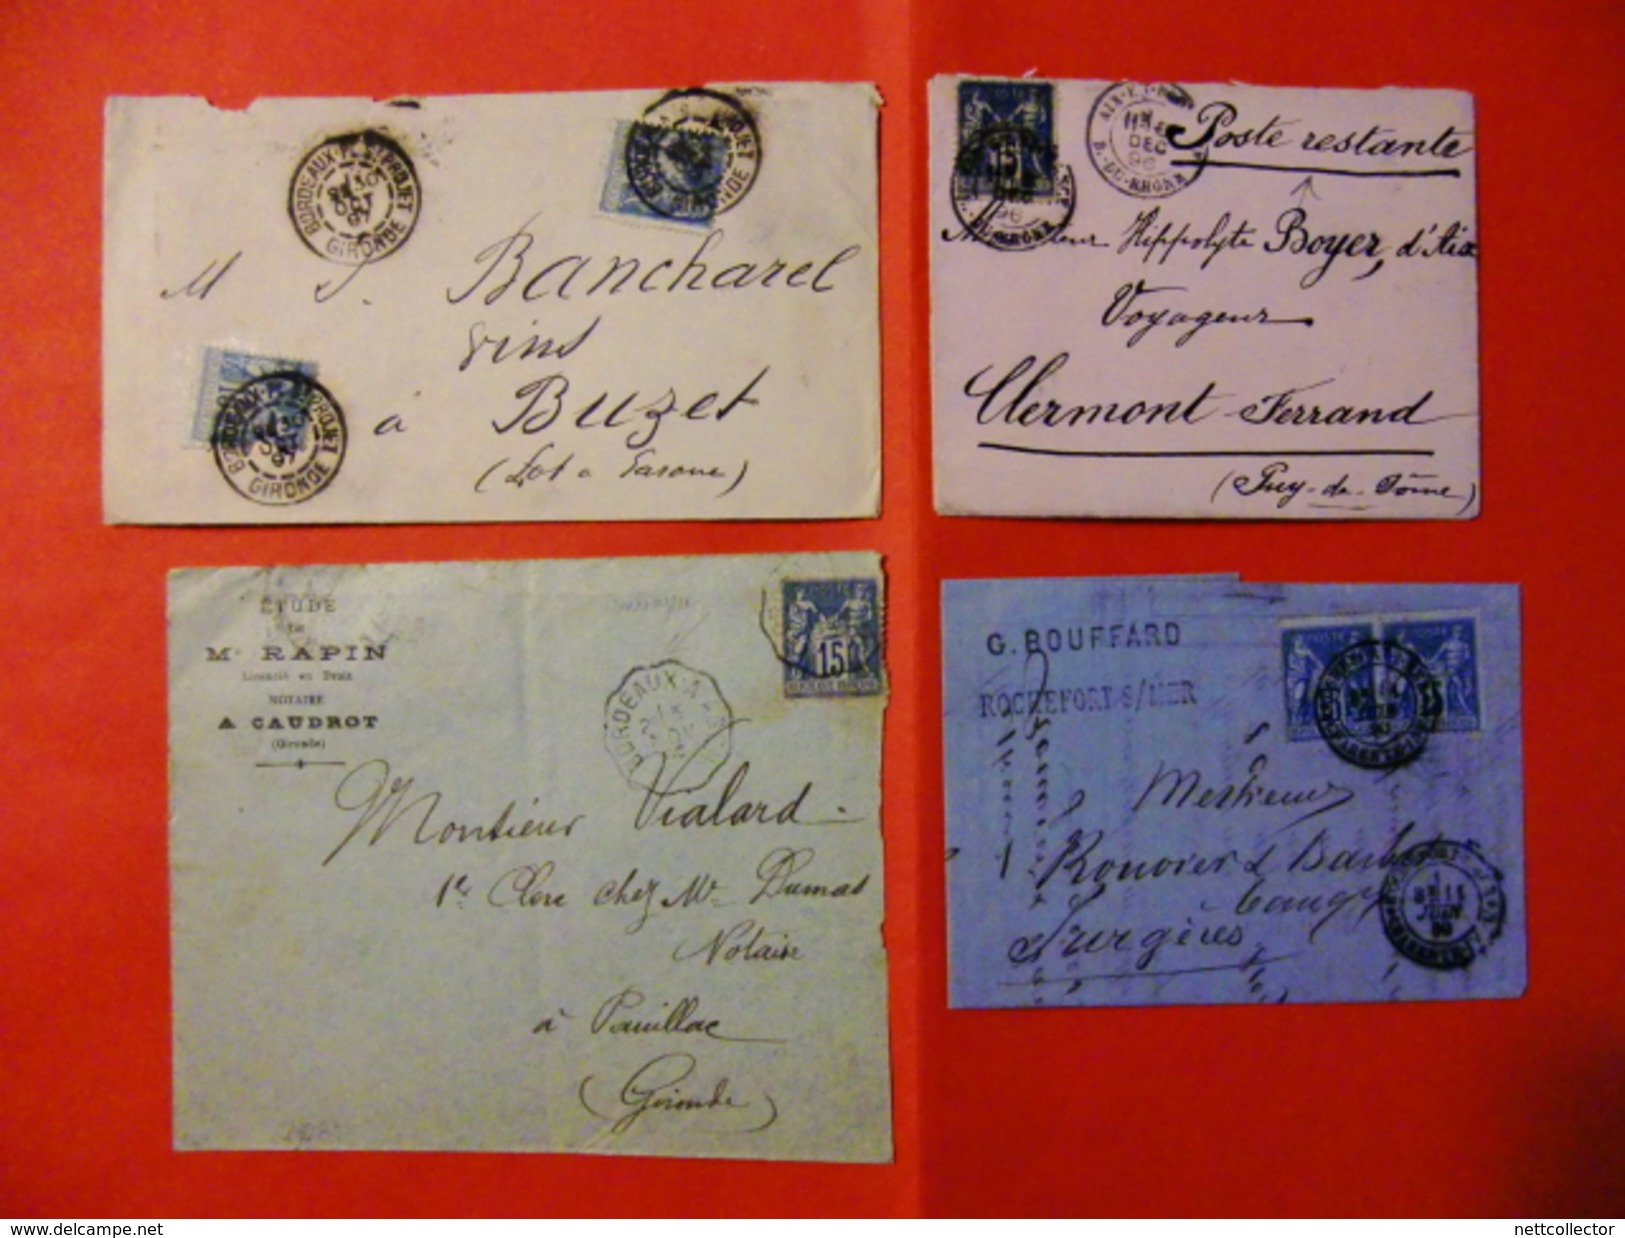 BORDEAUX
GIRONDE
M J. Bancharel
vins
à Buzet
(Lot & Garonne)
BORDEAUX
GIRONDE
GIRONDE
15
DEC
96
B. DU RHONE
Poste restante
Monsieur Hippolyte Boyer, d'Aix
Voyageur
Clermont-Ferrand
(Puy-de-Dôme)
ÉTUDE
de
Me RAPIN
Licencié en Droit
NOTAIRE
A CAUDROT
(Gironde)
15
BORDEAUX A
Monsieur Vialard
1er Clerc chez Me Dumas
Notaire
à Pauillac
(Gironde)
G. BOUFFARD
ROCHEFORT S/MER
POSTE
Messieurs
Rouvier & Barbet
Surgères
JUIN
delcampe.net
nettcollector